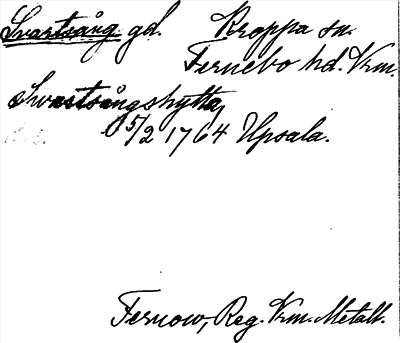 Svartsång gd. Kroppa sn.
Fernebo hd. Vrm.
Svartsångshytta,
5/2 1764 Upsala.
Fernow, Reg. Vrm. Metall.